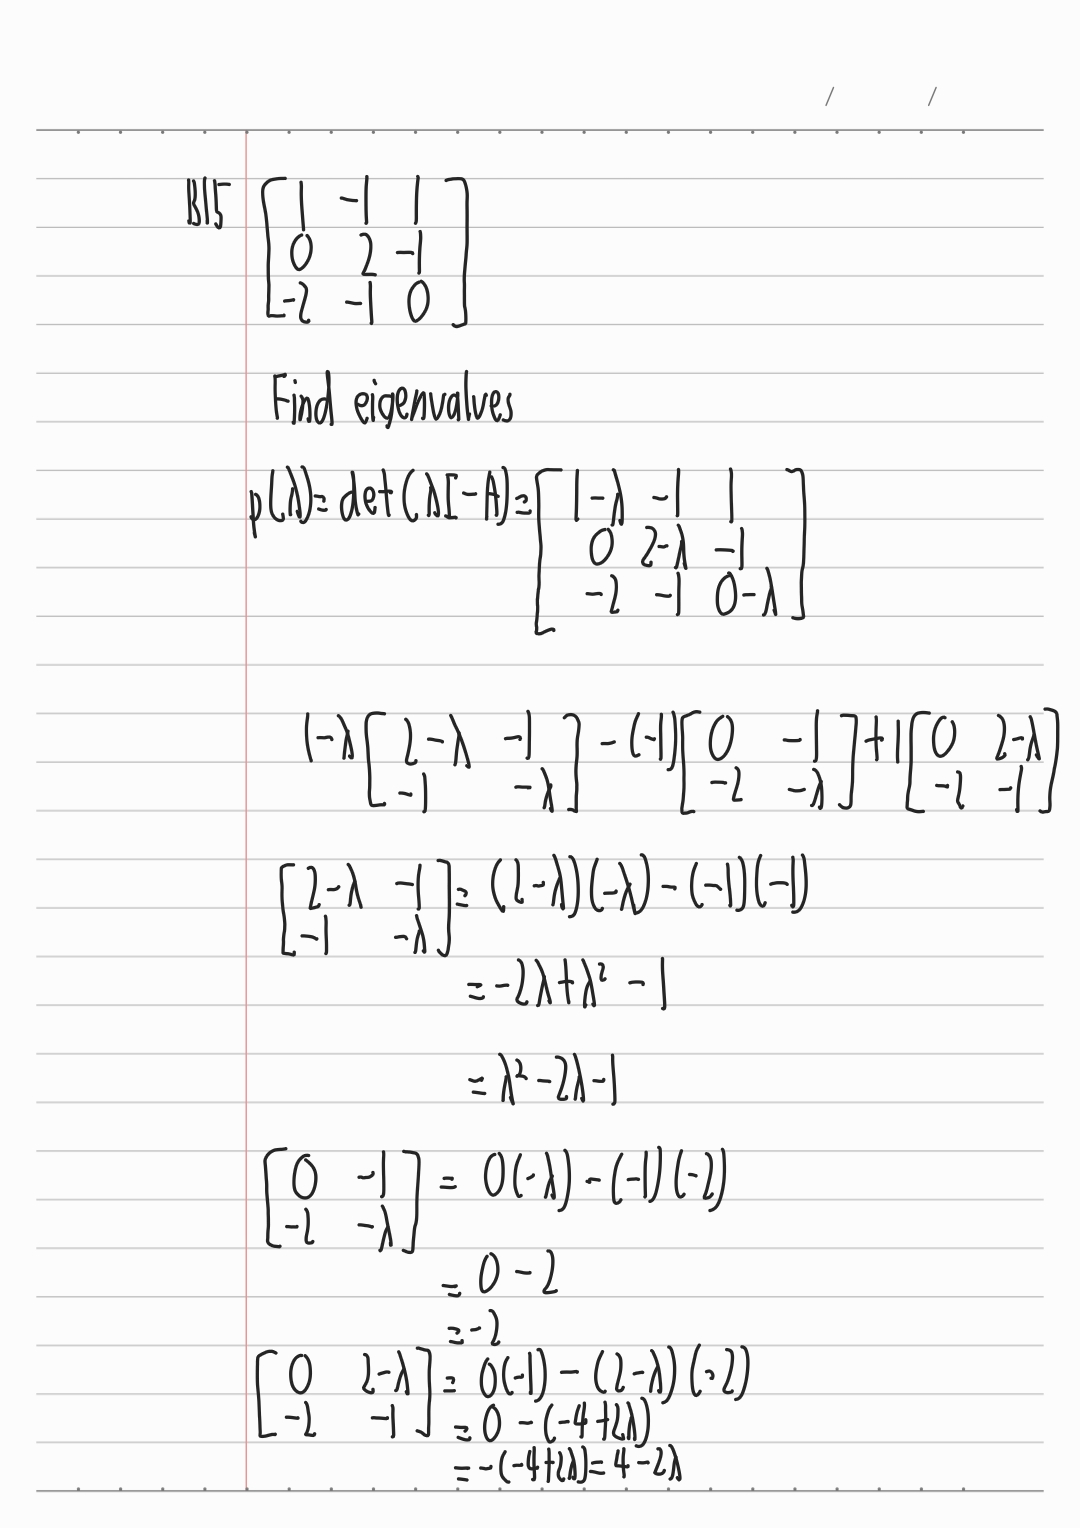 B15 [1 -1 1
0 2 -1
-2 -1 0]
Find eigenvalues
p(λ) = det(λI - A) = [1-λ -1 1
0 2-λ -1
-2 -1 0-λ]
1-λ [2-λ -1
-1 -λ] - (-1) [0 -1
-2 -λ] + 1 [0 2-λ
-2 -1]
[2-λ -1
-1 -λ] = (2-λ)(-λ) - (-1)(-1)
= -2λ + λ² - 1
= λ² - 2λ - 1
[0 -1
-2 -λ] = 0(-λ) - (-1)(-2)
= 0 - 2
= -2
[0 2-λ
-2 -1] = 0(-1) - (2-λ)(-2)
= 0 - (-4+2λ)
= -(-4+2λ) = 4-2λ